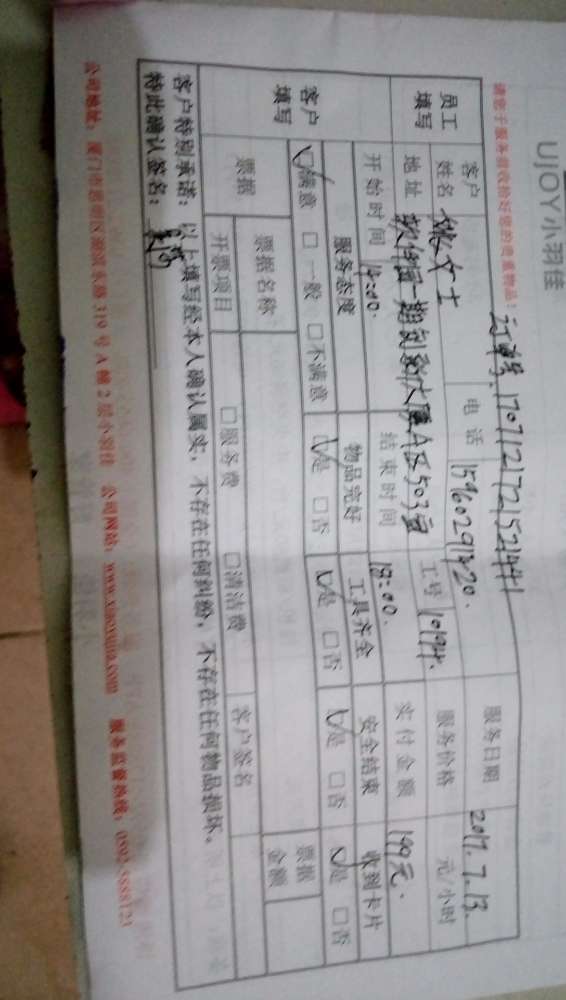 UJOY小羽佳
订单号: 1707121721521441
请您于服务前收拾好您的贵重物品!
员工填写
客户姓名 姚女士 电话 15960291420. 服务日期 2017.7.13.
地址 软件园一期创新大厦A区503室 工号 10194. 服务价格 元/小时
开始时间 14:00. 结束时间 18:00. 实付金额 149元.
客户填写
服务态度 物品完好 工具齐全 安全结束 收到卡片
☑满意 □一般 □不满意 ☑是 □否 ☑是 □否 ☑是 □否 ☑是 □否
票据 票据名称 客户签名 票据金额
开票项目 □服务费 □清洁费
客户特别承诺: 以上填写经本人确认属实, 不存在任何纠纷, 不存在任何物品损坏。
特此确认签名:
公司地址: 厦门市思明区湖滨东路319号A幢2层小羽佳 公司网站: www.xiaoyujia.com 服务监督热线: 0592-5888123